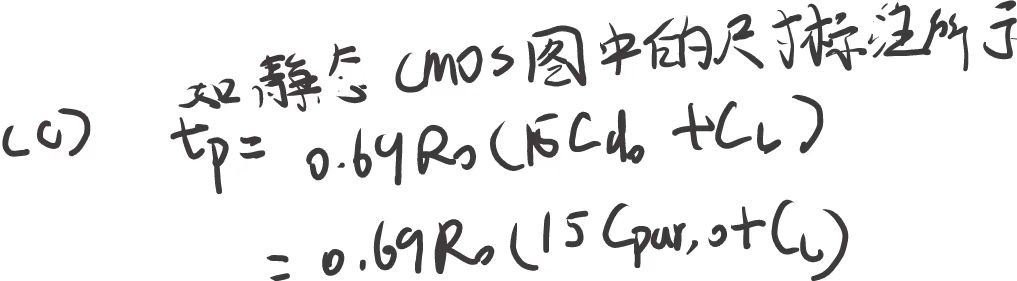 如静态CMOS图中的尺寸标注所示
(c) tp = 0.69R₀(15Cd₀ + CL)
= 0.69R₀(15Cpar,0 + CL)